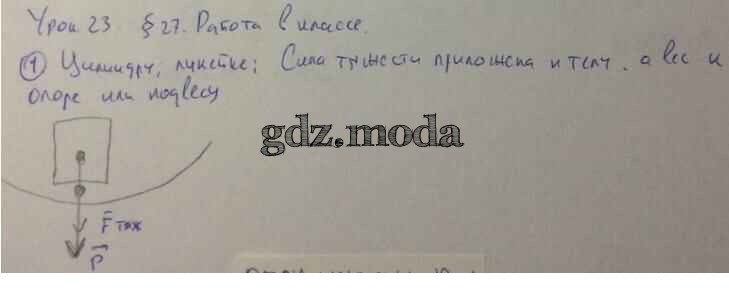 Урок 23 § 27. Работа в классе.
① Цилиндру, линейке; Сила тяжести приложена к телу, а вес к
опоре или подвесу
gdz.moda
F тяж
P